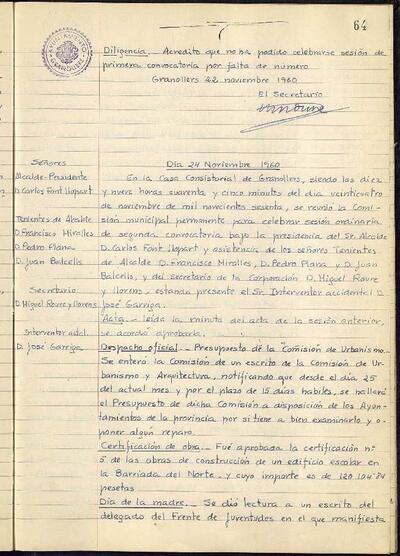 64
AYUNTAMIENTO
GRANOLLERS
Diligencia.- Acredito que no ha podido celebrarse sesión de
primera convocatoria por falta de número
Granollers 22 noviembre 1960
El Secretario
Señores
Alcalde-Presidente
D. Carlos Font Llopart
Tenientes de Alcalde
D. Francisco Miralles
D. Pedro Plana
D. Juan Balcells
Secretario
D. Miguel Roure y Llorens
Interventor acdal.
D. José Garriga
Día 24 Noviembre 1960
En la Casa Consistorial de Granollers, siendo las diez
y nueve horas cuarenta y cinco minutos del día veinticuatro
de noviembre de mil novecientos sesenta, se reunió la Comi-
sión municipal permanente para celebrar sesión ordinaria
de segunda convocatoria bajo la presidencia del Sr. Alcalde
D. Carlos Font Llopart y asistencia de los señores Tenientes
de Alcalde D. Francisco Miralles, D. Pedro Plana y D. Juan
Balcells, y del secretario de la Corporación D. Miguel Roure
y Llorens, estando presente el Sr. Interventor accidental D.
José Garriga.
Acta.- leída la minuta del acta de la sesión anterior,
se acordó aprobarla.
Despacho oficial.- Presupuesto de la Comisión de Urbanismo.-
Se enteró la Comisión de un escrito de la Comisión de Ur-
banismo y Arquitectura, notificando que desde el día 25
del actual mes y por el plazo de 15 días habiles, se hallará
el Presupuesto de dicha Comisión a disposición de los Ayun-
tamientos de la provincia por si tiene a bien examinarlo y o-
poner algún reparo.
Certificación de obra.- Fué aprobada la certificación nº
5 de las obras de construcción de un edificio escolar en
la Barriada del Norte, y cuyo importe es de 120.104'84
pesetas
Día de la madre.- Se dió lectura a un escrito del
delegado del Frente de Juventudes en el que manifiesta